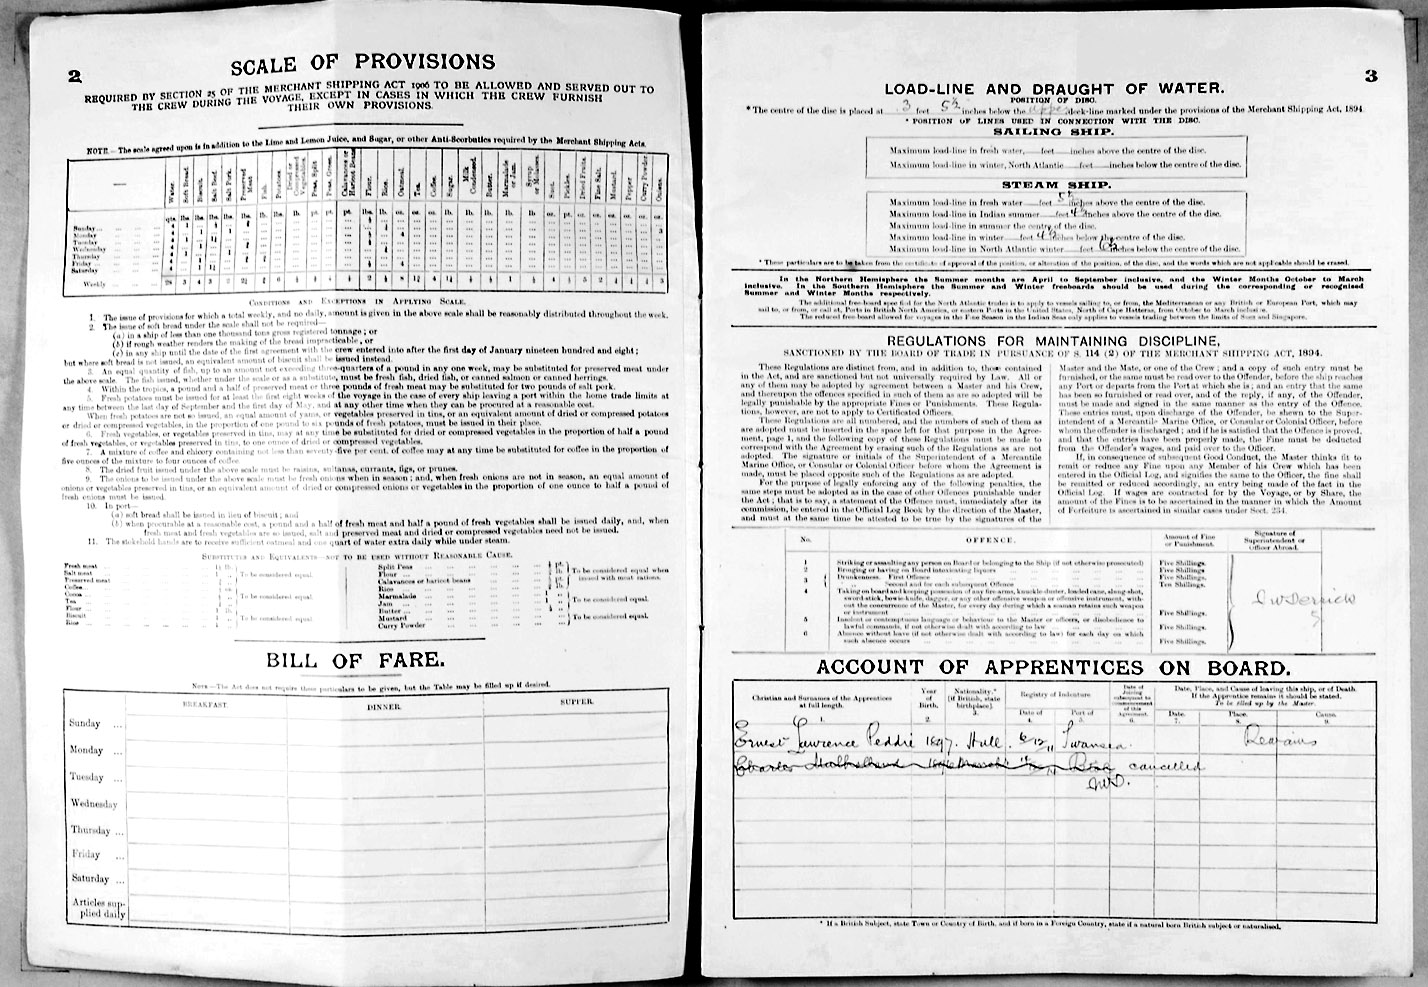 2
SCALE OF PROVISIONS
REQUIRED BY SECTION 25 OF THE MERCHANT SHIPPING ACT 1906 TO BE ALLOWED AND SERVED OUT TO
THE CREW DURING THE VOYAGE, EXCEPT IN CASES IN WHICH THE CREW FURNISH
THEIR OWN PROVISIONS.
NOTE.—The scale agreed upon is in addition to the Lime and Lemon Juice, and Sugar, or other Anti-Scorbutics required by the Merchant Shipping Acts.
Water. Soft Bread. Biscuit. Salt Beef. Salt Pork. Preserved Meat. Fish. Potatoes. Dried or Compressed Vegetables. Peas, Split. Peas, Green. Calavances or Haricot Beans. Flour. Rice. Oatmeal. Tea. Coffee. Sugar. Milk Condensed. Butter. Marmalade or Jam. Syrup or Molasses. Suet. Pickles. Dried Fruits. Fine Salt. Mustard. Pepper. Curry Powder. Onions.
Sunday
Monday
Tuesday
Wednesday
Thursday
Friday
Saturday
Weekly
CONDITIONS AND EXCEPTIONS IN APPLYING SCALE.
1. The issue of provisions for which a total weekly, and no daily, amount is given in the above scale shall be reasonably distributed throughout the week.
2. The issue of soft bread under the scale shall not be required—
(a) in a ship of less than one thousand tons gross registered tonnage; or
(b) if rough weather renders the making of the bread impracticable, or
(c) in any ship until the date of the first agreement with the crew entered into after the first day of January nineteen hundred and eight;
but where soft bread is not issued, an equivalent amount of biscuit shall be issued instead.
3. An equal quantity of fish, up to an amount not exceeding three-quarters of a pound in any one week, may be substituted for preserved meat under
the above scale. The fish issued, whether under the scale or as a substitute, must be fresh fish, dried fish, or canned salmon or canned herrings.
4. Within the tropics, a pound and a half of preserved meat or three pounds of fresh meat may be substituted for two pounds of salt pork.
5. Fresh potatoes must be issued for at least the first eight weeks of the voyage in the case of every ship leaving a port within the home trade limits at
any time between the last day of September and the first day of May, and at any other time when they can be procured at a reasonable cost.
When fresh potatoes are not so issued, an equal amount of yams, or vegetables preserved in tins, or an equivalent amount of dried or compressed potatoes
or dried or compressed vegetables, in the proportion of one pound to six pounds of fresh potatoes, must be issued in their place.
6. Fresh vegetables, or vegetables preserved in tins, may at any time be substituted for dried or compressed vegetables in the proportion of half a pound
of fresh vegetables, or vegetables preserved in tins, to one ounce of dried or compressed vegetables.
7. A mixture of coffee and chicory containing not less than seventy-five per cent. of coffee may at any time be substituted for coffee in the proportion of
five ounces of the mixture to four ounces of coffee.
8. The dried fruit issued under the above scale must be raisins, sultanas, currants, figs, or prunes.
9. The onions to be issued under the above scale must be fresh onions when in season; and, when fresh onions are not in season, an equal amount of
onions or vegetables preserved in tins, or an equivalent amount of dried or compressed onions or vegetables in the proportion of one ounce to half a pound of
fresh onions must be issued.
10. In port—
(a) soft bread shall be issued in lieu of biscuit; and
(b) when procurable at a reasonable cost, a pound and a half of fresh meat and half a pound of fresh vegetables shall be issued daily, and, when
fresh meat and fresh vegetables are so issued, salt and preserved meat and dried or compressed vegetables need not be issued.
11. The stokehold hands are to receive sufficient oatmeal and one quart of water extra daily while under steam.
SUBSTITUTES AND EQUIVALENTS—NOT TO BE USED WITHOUT REASONABLE CAUSE.
Fresh meat
Salt meat
Preserved meat
To be considered equal.
Coffee
Cocoa
Tea
To be considered equal.
Flour
Biscuit
Rice
To be considered equal.
Split Peas
Flour
Calavances or haricot beans
Rice
To be considered equal when issued with meat rations.
Marmalade
Jam
Butter
To be considered equal.
Mustard
Curry Powder
To be considered equal.
BILL OF FARE.
NOTE—The Act does not require these particulars to be given, but the Table may be filled up if desired.
BREAKFAST. DINNER. SUPPER.
Sunday
Monday
Tuesday
Wednesday
Thursday
Friday
Saturday
Articles supplied daily
3
LOAD-LINE AND DRAUGHT OF WATER.
POSITION OF DISC.
* The centre of the disc is placed at 3 feet 5½ inches below the upper deck-line marked under the provisions of the Merchant Shipping Act, 1894.
* POSITION OF LINES USED IN CONNECTION WITH THE DISC.
SAILING SHIP.
Maximum load-line in fresh water, feet inches above the centre of the disc.
Maximum load-line in winter, North Atlantic feet inches below the centre of the disc.
STEAM SHIP.
Maximum load-line in fresh water feet inches above the centre of the disc.
Maximum load-line in Indian summer feet inches above the centre of the disc.
Maximum load-line in summer the centre of the disc.
Maximum load-line in winter feet inches below the centre of the disc.
Maximum load-line in North Atlantic winter feet inches below the centre of the disc.
* These particulars are to be taken from the certificate of approval of the position, or alteration of the position, of the disc, and the words which are not applicable should be erased.
In the Northern Hemisphere the Summer months are April to September inclusive, and the Winter Months October to March
inclusive. In the Southern Hemisphere the Summer and Winter freeboards should be used during the corresponding or recognised
Summer and Winter Months respectively.
The additional free-board specified for the North Atlantic trades is to apply to vessels sailing to, or from, the Mediterranean or any British or European Port, which may
sail to, or from, or call at, Ports in British North America, or eastern Ports in the United States, North of Cape Hatteras, from October to March inclusive.
The reduced free-board allowed for voyages in the Fine Season in the Indian Seas only applies to vessels trading between the limits of Suez and Singapore.
REGULATIONS FOR MAINTAINING DISCIPLINE,
SANCTIONED BY THE BOARD OF TRADE IN PURSUANCE OF S. 114 (2) OF THE MERCHANT SHIPPING ACT, 1894.
These Regulations are distinct from, and in addition to, those contained
in the Act, and are sanctioned but not universally required by Law. All or
any of them may be adopted by agreement between a Master and his Crew,
and thereupon the offences specified in such of them as are so adopted will be
legally punishable by the appropriate Fines or Punishments. These Regulations,
however, are not to apply to Certificated Officers.
These Regulations are all numbered, and the numbers of such of them as
are adopted must be inserted in the space left for that purpose in the Agreement,
page 1, and the following copy of these Regulations must be made to
correspond with the Agreement by erasing such of the Regulations as are not
adopted. The signature or initials of the Superintendent of a Mercantile
Marine Office, or Consular or Colonial Officer before whom the Agreement is
made, must be placed opposite such of the Regulations as are adopted.
For the purpose of legally enforcing any of the following penalties, the
same steps must be adopted as in the case of other Offences punishable under
the Act; that is to say, a statement of the Offence must, immediately after its
commission, be entered in the Official Log Book by the direction of the Master,
and must at the same time be attested to be true by the signatures of the
Master and the Mate, or one of the Crew; and a copy of such entry must be
furnished, or the same must be read over to the Offender, before the ship reaches
any Port or departs from the Port at which she is; and an entry that the same
has been so furnished or read over, and of the reply, if any, of the Offender,
must be made and signed in the same manner as the entry of the Offence.
These entries must, upon discharge of the Offender, be shewn to the Superintendent
of a Mercantile Marine Office, or Consular or Colonial Officer, before
whom the offender is discharged; and if he is satisfied that the Offence is proved,
and that the entries have been properly made, the Fine must be deducted
from the Offender's wages, and paid over to the Officer.
If, in consequence of subsequent Good Conduct, the Master thinks fit to
remit or reduce any Fine upon any Member of his Crew which has been
entered in the Official Log, and signifies the same to the Officer, the fine shall
be remitted or reduced accordingly, an entry being made of the fact in the
Official Log. If wages are contracted for by the Voyage, or by Share, the
amount of the Fines is to be ascertained in the manner in which the Amount
of Forfeiture is ascertained in similar cases under Sect. 234.
No. OFFENCE. Amount of Fine or Punishment. Signature of Superintendent or Officer Abroad.
1 Striking or assaulting any person on Board or belonging to the Ship (if not otherwise prosecuted) Five Shillings.
2 Bringing or having on Board intoxicating liquors Five Shillings.
3 Drunkenness. First Offence Five Shillings.
Second and for each subsequent Offence Ten Shillings.
4 Taking on board and keeping possession of any fire-arms, knuckle-duster, loaded cane, slung-shot,
sword-stick, bowie-knife, dagger, or any other offensive weapon or offensive instrument, without
the concurrence of the Master, for every day during which a seaman retains such weapon
or instrument Five Shillings.
5 Insolent or contemptuous language or behaviour to the Master or officers, or disobedience to
lawful commands, if not otherwise dealt with according to law Five Shillings.
6 Absence without leave (if not otherwise dealt with according to law) for each day on which
such absence occurs Five Shillings.
J W Derrick
ACCOUNT OF APPRENTICES ON BOARD.
Christian and Surnames of the Apprentices at full length. 1.
Year of Birth. 2.
Nationality.* (If British, state birthplace). 3.
Registry of Indenture
Date of 4.
Port of 5.
Date of Joining subsequent to commencement of this Agreement. 6.
Date, Place, and Cause of leaving this ship, or of Death.
If the Apprentice remains it should be stated.
To be filled up by the Master.
Date. 7.
Place. 8.
Cause. 9.
Ernest Lawrence Peddie 1897. Hull. 6/12/11 Swansea. Remains
Charles cancelled
JWD.
* If a British Subject, state Town or Country of Birth, and if born in a Foreign Country, state if a natural born British subject or naturalised.